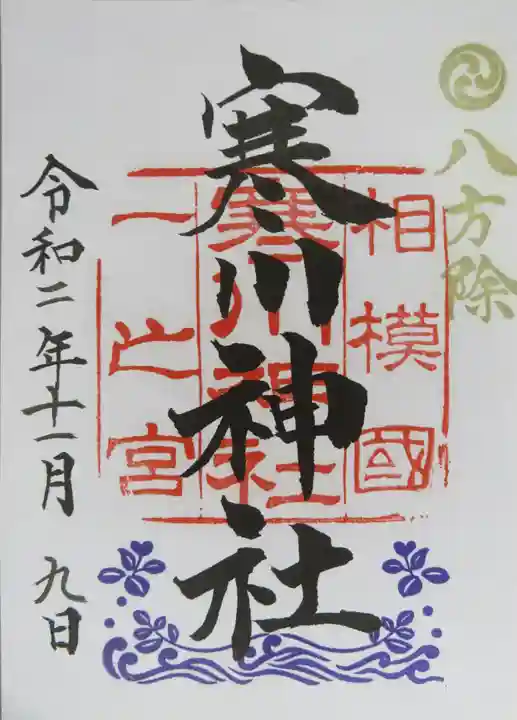 八方除
相模國
寒川神社
一之宮
寒川神社
令和二年十一月 九日